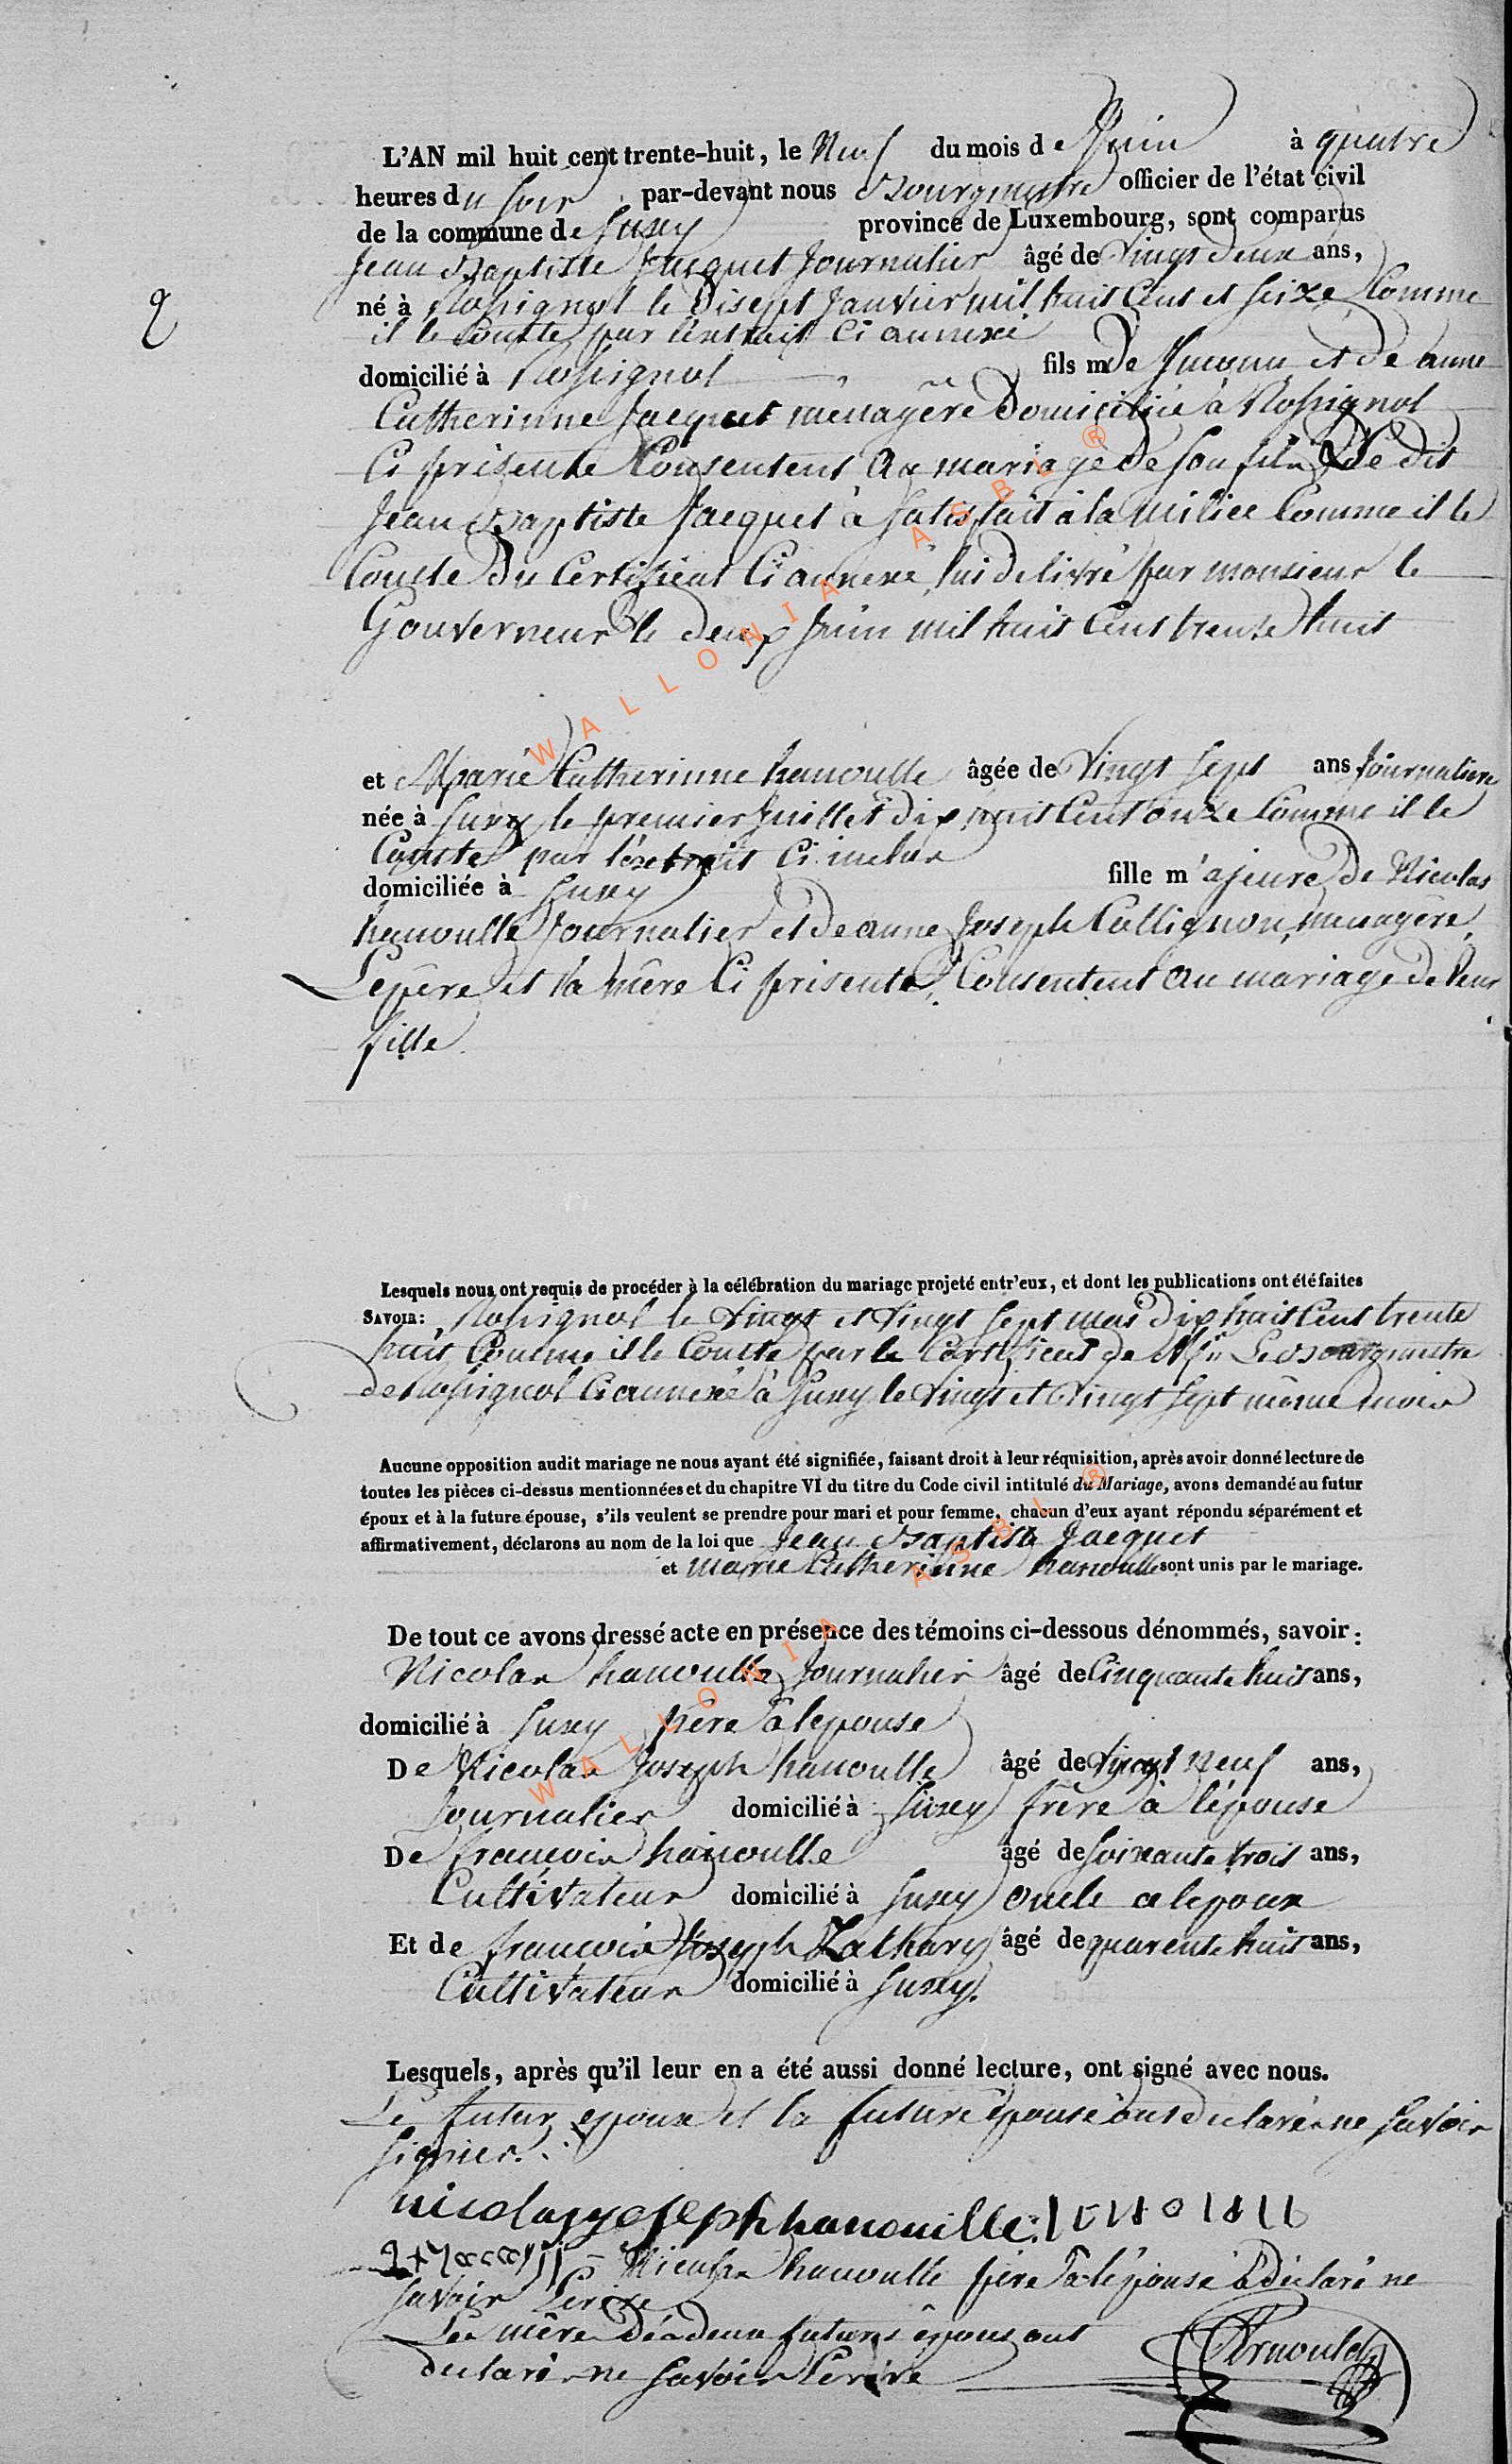 L'AN mil huit cent trente-huit, le Neuf du mois de Juin à quatre
heures du soir par-devant nous Bourgmestre officier de l'état civil
de la commune de Suxy province de Luxembourg, sont comparus
Jean Baptiste Jacquet Journalier âgé de Vingt deux ans,
2
né à Rossignol le disept Janvier mil huit Cent et seize Comme
il le Conste par l'extrait Ci annexé
domicilié à Rossignol fils m de et de anne
Catherinne Jacquet ménagère Domiciliée à Rossignol
Ci présente Consentent Au mariage de son fils Le dit
Jean Baptiste Jacquet à satisfait à la milice Comme il le
Conste Du Certificat Ci annexé, lui delivré par monsieur le
Gouverneur le deux Juin mil huit Cent trente huit
et Marie Catherinne hanoulle âgée de Vingt sept ans Journalière
née à Suxy le premier Juillet dix huit Cent onze Comme il le
Conste par l'extrait Ci inclus
domiciliée à Suxy fille m'ajeure de Nicolas
hanoulle Journalier et de anne Joseph Collignon, menagère,
Le père et la mère Ci présents, Consentent Au mariage de leur
fille
Lesquels nous ont requis de procéder à la célébration du mariage projeté entr'eux, et dont les publications ont été faites
SAVOIR: Rossignol le Vingt et Vingt sept mai dix huit Cent trente
huit Comme il le Conste par le Certificat de Mr Le Bourgmestre
de Rossignol Ci annexé à Suxy le Vingt et Vingt sept même mois
Aucune opposition audit mariage ne nous ayant été signifiée, faisant droit à leur réquisition, après avoir donné lecture de
toutes les pièces ci-dessus mentionnées et du chapitre VI du titre du Code civil intitulé du Mariage, avons demandé au futur
époux et à la future épouse, s'ils veulent se prendre pour mari et pour femme, chacun d'eux ayant répondu séparément et
affirmativement, déclarons au nom de la loi que Jean Baptiste Jacquet
et marie Catherinne hanoulle sont unis par le mariage.
De tout ce avons dressé acte en présence des témoins ci-dessous dénommés, savoir:
Nicolas hanoulle Journalier âgé de Cinquante huit ans,
domicilié à Suxy père à lepouse
De Nicolas Joseph hanoulle âgé de Vingt Neuf ans,
Journalier domicilié à Suxey frère à lépouse
De francois hanoulle âgé de soixante trois ans,
Cultivateur domicilié à Suxey oncle a lepoux
Et de françois Joseph Zathary âgé de quarente huit ans,
Cultivateur domicilié à Suxy.
Lesquels, après qu'il leur en a été aussi donné lecture, ont signé avec nous.
Le futur epoux et la future épouse ont declarés ne savoir
signer.
nicolas yoseph hanouille
Nicolas hanoulle père à lépouse à déclaré ne
savoir Ecrire
Les mères Des deux futurs époux ont
declaré ne savoir Ecrire Arnould
WALLONIA ASBL ®
WALLONIA ASBL ®